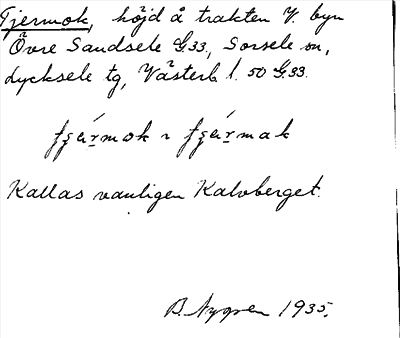 Tjermok, höjd å trakten V. byn
Övre Sandsele G.33, Sorsele sn,
Lycksele tg, Västerb. l. 50 G.33.
Kallas vanligen Kalvberget.
B. Nygren 1935.